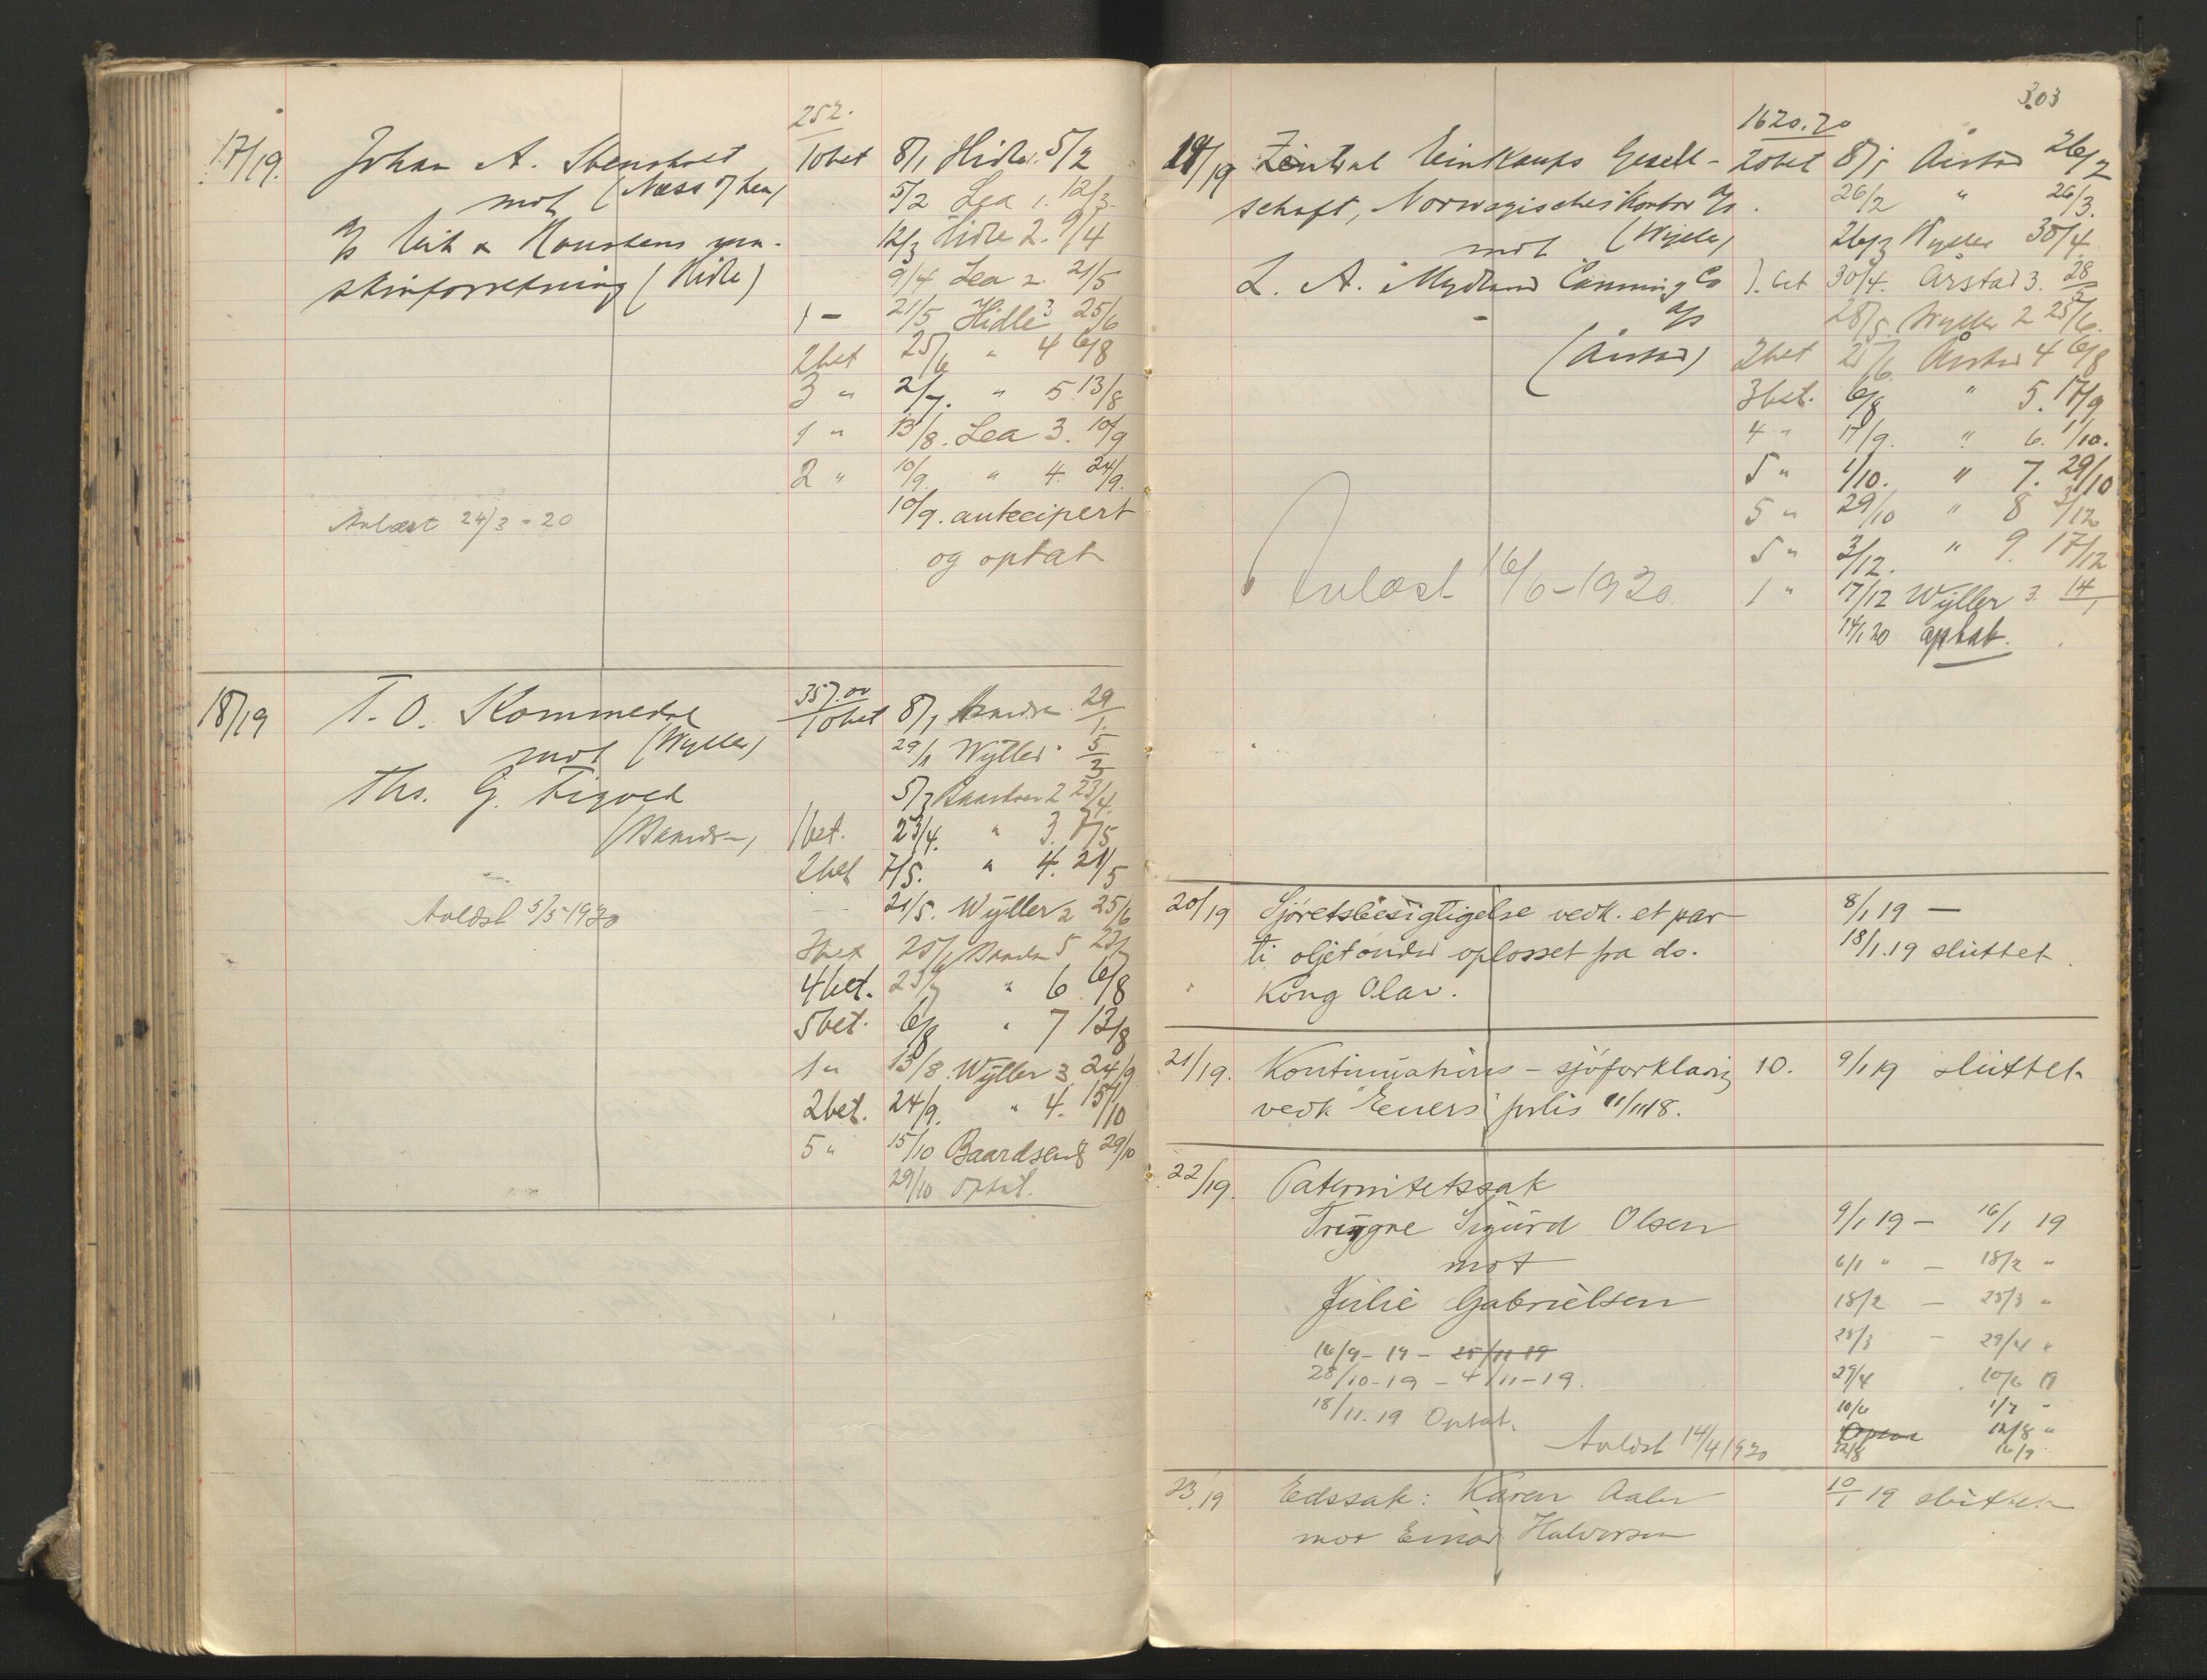 252.
17/19. Johan A. Stensholt 10bet 8/1 Hidle. 5/2
mot (Næss 5/2 Lea 1. 12/3.
12/3 Hidle 2. 9/4
skinforretning (Hidle) 9/4 Lea 2. 21/5
1 — 21/5 Hidle 3 25/6
2bet 25/6 " 4 6/8
3 " 2/7. " 5 13/8
1 " 13/8. Lea 3. 10/9
2 " 10/9. " 4. 24/9.
10/9. antecipert
Avlæst 24/3 - 20
og optat
18/19 T. O. Kommedal 357.00 10bet 8/1 29/1.
mot (Wyller) 29/1 Wyller 5/3
Ths. G. 5/3 Baardsen 2 23/4.
1bet. 23/4. " 3. 7/5
2bet 7/5. " 4. 21/5
21/5. Wyller 2 25/6
Avlæst 5/5 1920
3bet 25/6 5
4bet. " 6 6/8
5bet. 6/8 " 7 13/8
1 " 13/8. Wyller 3. 24/9
2bet. 24/9. " 4. 15/10
5 " 15/10 Baardsen 8 29/10
29/10 optat.
303
1620.70
19/19 Zentral Einkaufs Gesell- 20bet 8/1 Årstad 26/2
schaft, Norwegisches Kontor A/S. 26/2 " 26/3.
mot (Wyller) 26/3 Wyller 30/4
L. A. Mydland Canning Co 1. bet 30/4. Årstad 3. 28/5
A/S 28/5. Wyller 2 25/6.
(Årstad) 2bet 25/6. Årstad 4 6/8
3bet. 6/8 " 5. 17/9
4 " 17/9. " 6. 1/10.
5 " 1/10. " 7. 29/10
5 " 29/10 " 8 3/12
5 " 3/12. " 9. 17/12
Avlæst 16/6 - 1920.
1 " 17/12 Wyller 3. 14/1
14/1 20 optat.
20/19 Sjøretsbesigtigelse vedk. et par- 8/1 19 —
ti oljetønder oplosset fra ds. 18/1.19 sluttet.
Kong Olav.
21/19. Kontinuations - sjøforklaring 10. 9/1 19 sluttet
vedk "Eners" forlis 11/11 18.
22/19. Paternitetssak
Trygve Sigurd Olsen 9/1 19 — 16/1 19
mot 6/1 " — 18/2 "
Julie Gabrielsen 18/2 — 25/3 "
25/3 — 29/4 "
16/9 - 19 - 25/11 19
28/10 - 19 - 4/11 - 19. 29/4 10/6 19
18/11. 19 Optat. 10/6 1/7 "
Optat 12/8 "
Avlæst 14/4 1920 12/8 16/9
23/19 Edssak: Karen 10/1 19 sluttet
mot Einar Halvorsen